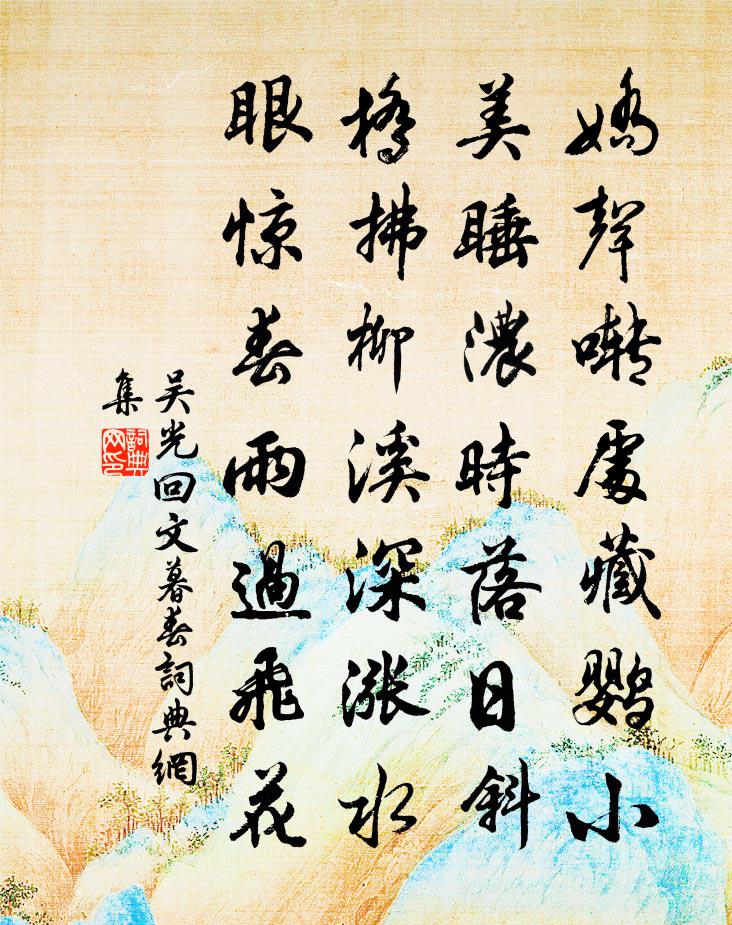 嬌聲囀處藏鸚小
美睡濃時落日斜
橋拂柳溪深漲水
眼惊春雨過飛花
吴光回文暮春詞典網
集
詞典
网印